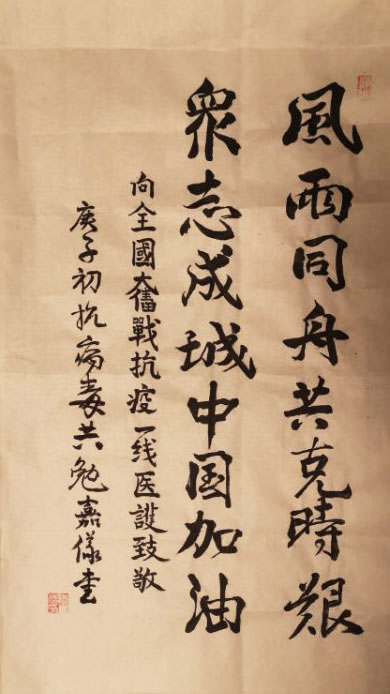 風雨同舟共克時艱
眾志成城中国加油
向全國奮戰抗疫一线医護致敬
庚子初抗病毒共勉嘉儀書